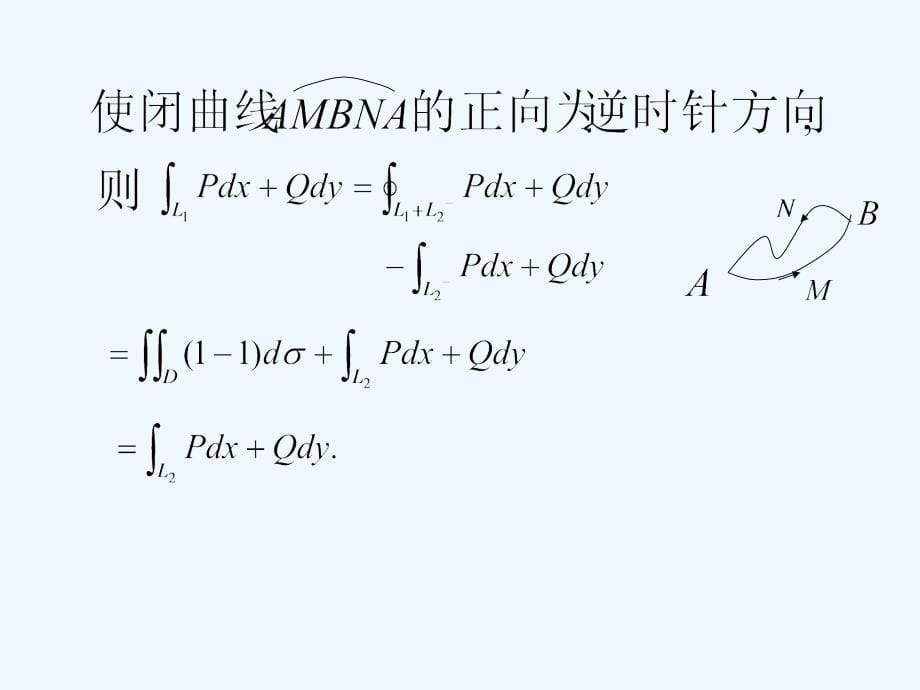 使闭曲线AMBNA的正向为逆时针方向,
则 ∫_{L₁} Pdx + Qdy = ∮_{L₁+L₂⁻} Pdx + Qdy
− ∫_{L₂⁻} Pdx + Qdy
= ∬_D (1−1)dσ + ∫_{L₂} Pdx + Qdy
= ∫_{L₂} Pdx + Qdy.
N
B
A
M